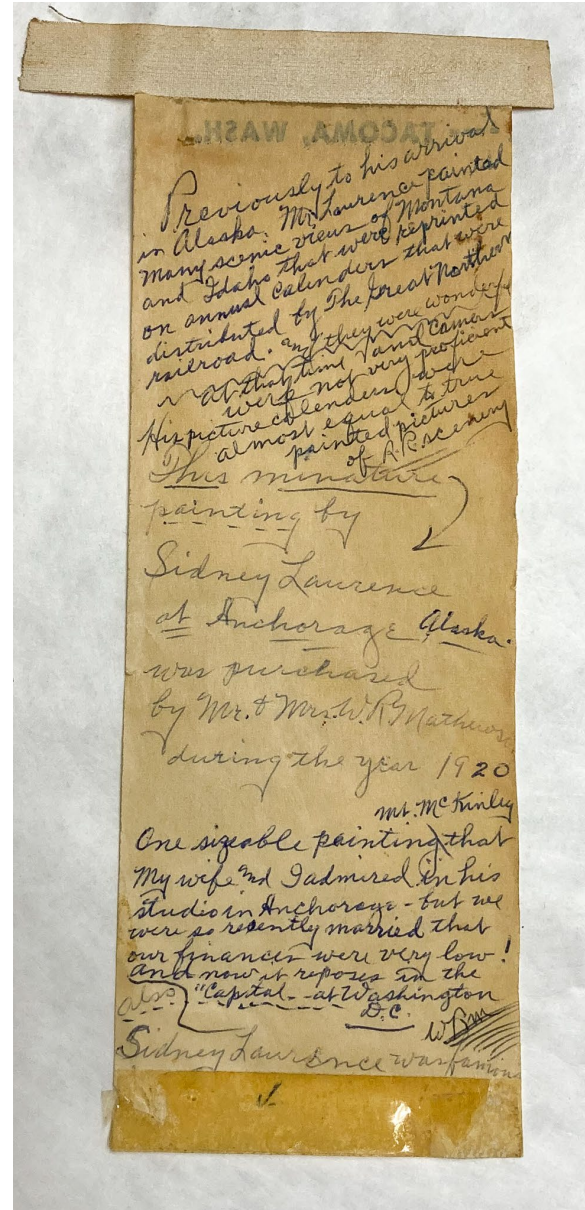 TACOMA, WASH.
Previously to his arrival
in Alaska. Mr. Laurence painted
many scenic views of Montana
and Idaho that were reprinted
on annual calenders that were
distributed by The Great Northern
railroad. and they were wonderful
at that time and cameras
were not very proficient
His picture calenders were
almost equal to true
painted pictures
of R.R. scenery
This minature
painting by
Sidney Laurence
at Anchorage, Alaska.
was purchased
by Mr. & Mrs. W. R. Mathewson
during the year 1920
Mt. McKinley
One sizeable painting that
My wife and I admired in his
studio in Anchorage - but we
were so recently married that
our finances were very low!
and now it reposes in the
also "Capital - at Washington
D.C.
WRM
Sidney Laurence was famous